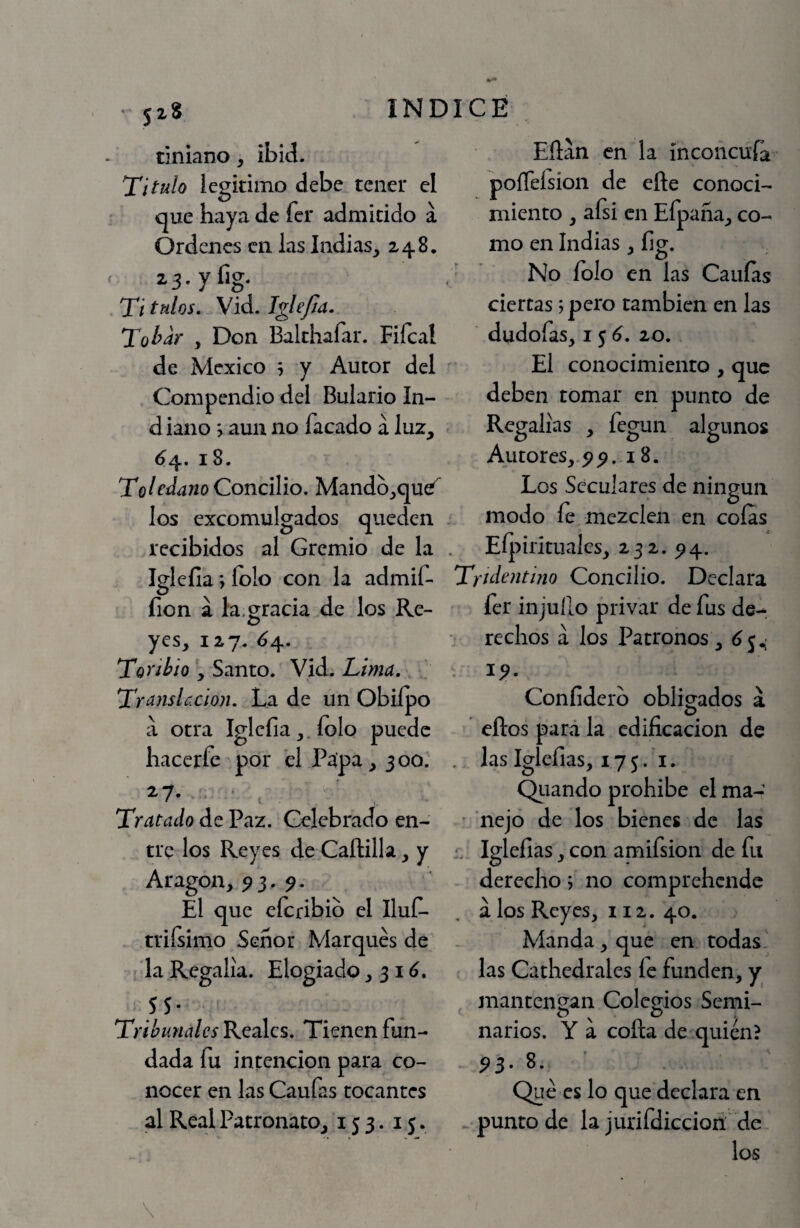 528 INDICE
tiniano, ibid.
Titulo legitimo debe tener el
que haya de ſer admitido à
Ordenes en las Indias, 248.
23. y ſig.
Titulos. Vid. Igleſia.
Tobàr, Don Balthaſar. Fiſcal
de Mexico; y Autor del
Compendio del Bulario In-
diano; aun no ſacado à luz,
64. 18.
Toledano Concilio. Mandò, que
los excomulgados queden
recibidos al Gremio de la
Igleſia; ſolo con la admiſ-
ſion à la gracia de los Re-
yes, 127. 64.
Toribio, Santo. Vid. Lima.
Translacion. La de un Obiſpo
à otra Igleſia, ſolo puede
hacerſe por el Papa, 300.
27.
Tratado de Paz. Celebrado en-
tre los Reyes de Caſtilla, y
Aragon, 93. 9.
El que eſcribiò el Iluſ-
triſsimo Señor Marquès de
la Regalìa. Elogiado, 316.
55.
Tribunales Reales. Tienen fun-
dada ſu intencion para co-
nocer en las Cauſas tocantes
al Real Patronato, 153. 15.
Eſtàn en la inconcuſa
poſſeſsion de eſte conoci-
miento, aſsi en Eſpaña, co-
mo en Indias, ſig.
No ſolo en las Cauſas
ciertas; pero tambien en las
dudoſas, 156. 20.
El conocimiento, que
deben tomar en punto de
Regalìas, ſegun algunos
Autores, 99. 18.
Los Seculares de ningun
modo ſe mezclen en coſas
Eſpirituales, 232. 94.
Tridentino Concilio. Declara
ſer injuſto privar de ſus de-
rechos à los Patronos, 65.
19.
Conſiderò obligados à
eſtos para la edificacion de
las Igleſias, 175. 1.
Quando prohibe el ma-
nejo de los bienes de las
Igleſias, con amiſsion de ſu
derecho; no comprehende
à los Reyes, 112. 40.
Manda, que en todas
las Cathedrales ſe funden, y
mantengan Colegios Semi-
narios. Y à coſta de quién?
93. 8.
Què es lo que declara en
punto de la juriſdiccion de
los